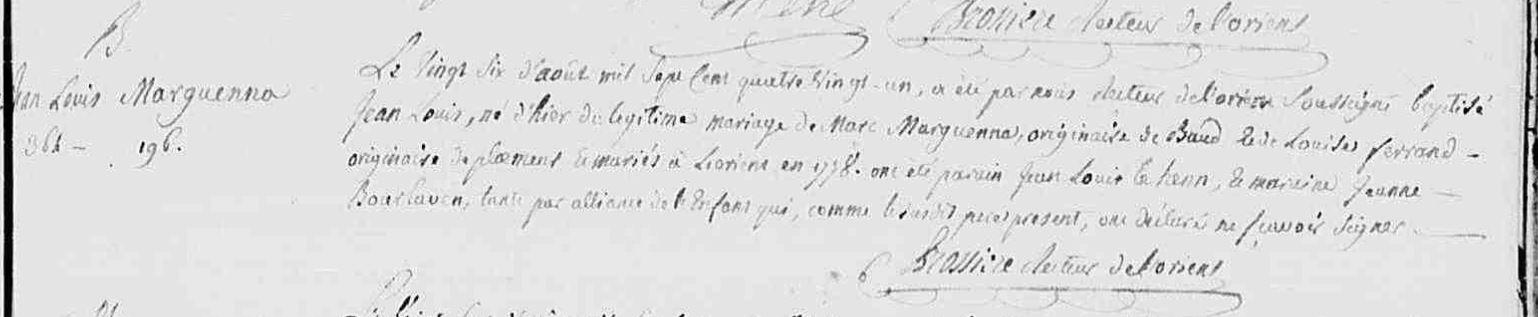 Brossiere Recteur de l'orient
B.
Jean Louis Marguenna
364 - 196.
Le vingt six d'août mil sept cent quatre vingt-un, a été par nous Recteur de l'orient soussigné baptisé
Jean Louis, né d'hier du légitime mariage de Marc Marguenna, originaire de Baud & de Louise ferrand -
originaire de plœmeur & mariés à Lorient en 1778. ont été parain Jean Louis le henn, & maraine Jeanne -
Bourlaven, tante par alliance de l'Enfant qui, comme le susdit pere present, ont déclaré ne sçavoir signer. -
Brossiere Recteur de l'orient